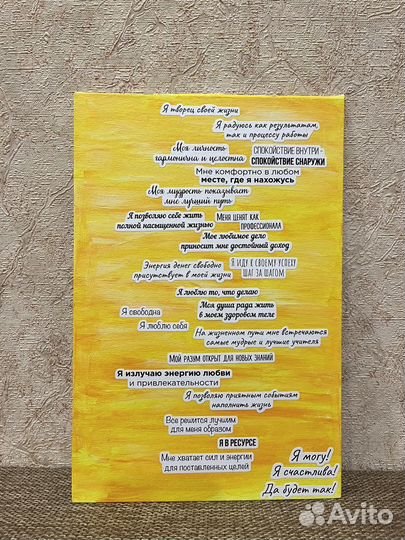 Я творец своей жизни
Я радуюсь как результатам,
так и процессу работы
Моя личность
гармонична и целостна
СПОКОЙСТВИЕ ВНУТРИ -
СПОКОЙСТВИЕ СНАРУЖИ
Мне комфортно в любом
месте, где я нахожусь
Моя мудрость показывает
мне лучший путь
Я позволяю себе жить
полной насыщенной жизнью
МЕНЯ ЦЕНЯТ КАК
ПРОФЕССИОНАЛА
Мое любимое дело
приносит мне достойный доход
Энергия денег свободно
присутствует в моей жизни
Я ИДУ К СВОЕМУ УСПЕХУ
ШАГ ЗА ШАГОМ
Я люблю то, что делаю
Я свободна
Моя душа рада жить
в моем здоровом теле
Я люблю себя
На жизненном пути мне встречаются
самые мудрые и лучшие учителя
МОЙ РАЗУМ ОТКРЫТ ДЛЯ НОВЫХ ЗНАНИЙ
Я излучаю энергию любви
и привлекательности
Я позволяю приятным событиям
наполнить жизнь
Все решится лучшим
для меня образом
Я В РЕСУРСЕ
Мне хватает сил и энергии
для поставленных целей
Я могу!
Я счастлива!
Да будет так!
Avito